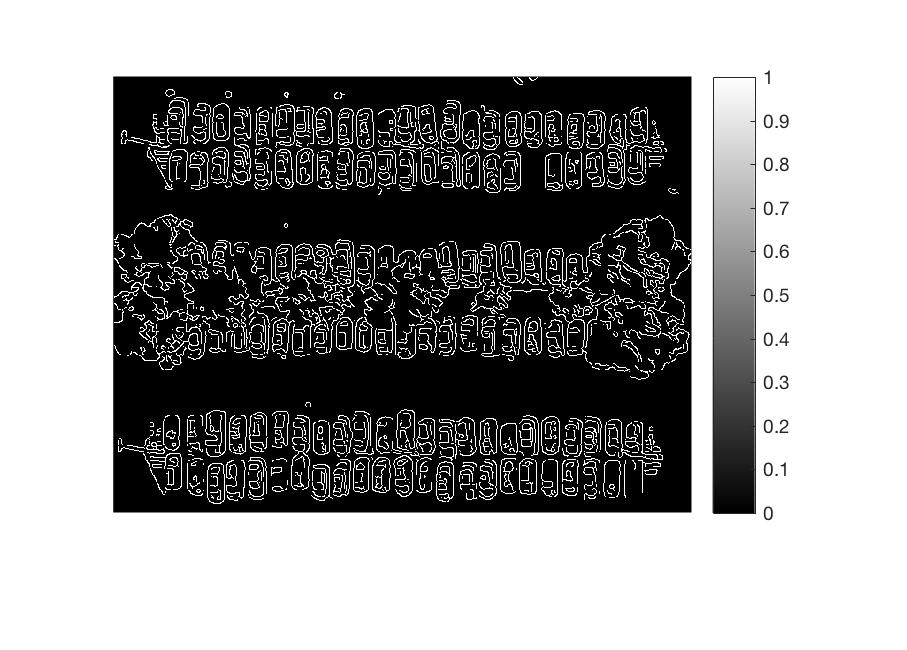 1
0.9
0.8
0.7
0.6
0.5
0.4
0.3
0.2
0.1
0